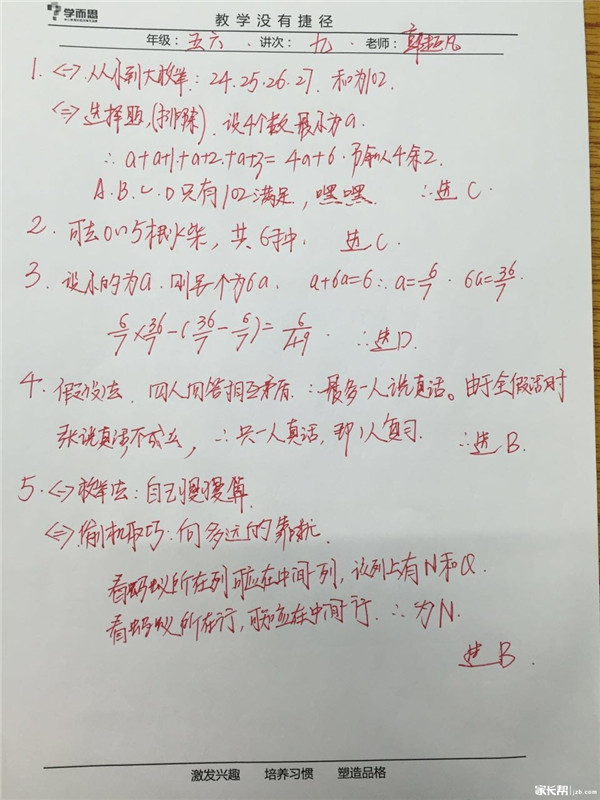 学而思
教学没有捷径
年级：五六 讲次：九、 老师：郭
1. <一> 从小到大枚举：24.25.26.27. 和为102.
<二> 选择题,(排除). 设4个数最小为a.
∴ a+a+1+a+2+a+3= 4a+6. 丂除以4余2.
A.B.C.D只有102满足，嘿嘿. ∴选 C.
2. 可去0~5根火柴，共6种. 选 C.
3. 设小的为a. 则另一个为6a. a+6a=6 ∴ a=6/7 . 6a=36/7.
6/7×36/7-(36/7-6/7)= 6/49 . ∴选D.
4. 假设法. 四人回答相互矛盾. ∴最多一人说真话。由于全假话时
张说真话不成立, ∴只一人真话，即1人复习. ∴选B.
5. <一> 枚举法：自己慢慢算.
<二> 偷机取巧：何多远的靠扰.
看蚂蚁所在列可应在中间列，该列上有N和Q.
看蚂蚁所在行，可知应在中间行. ∴为N.
选B.
激发兴趣 培养习惯 塑造品格
家长帮 jzb.com